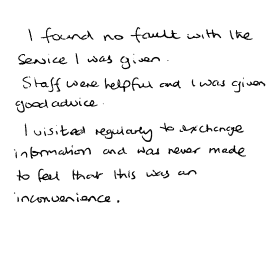 I found no fault with the
service I was given.
Staff were helpful and I was given
good advice.
I visited regularly to exchange
information and was never made
to feel that this was an
inconvenience.